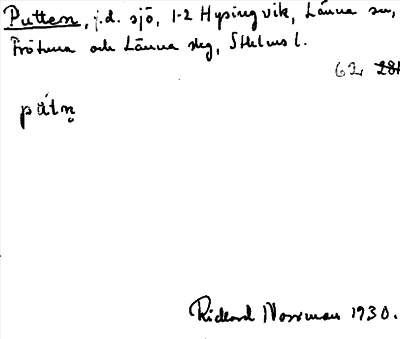 Putten, f.d. sjö, 1-2 Hysingvik, Länna sn,
Frötuna och Länna slg, Sthlms l.
62
pútn̥
Rickard Norrman 1930.